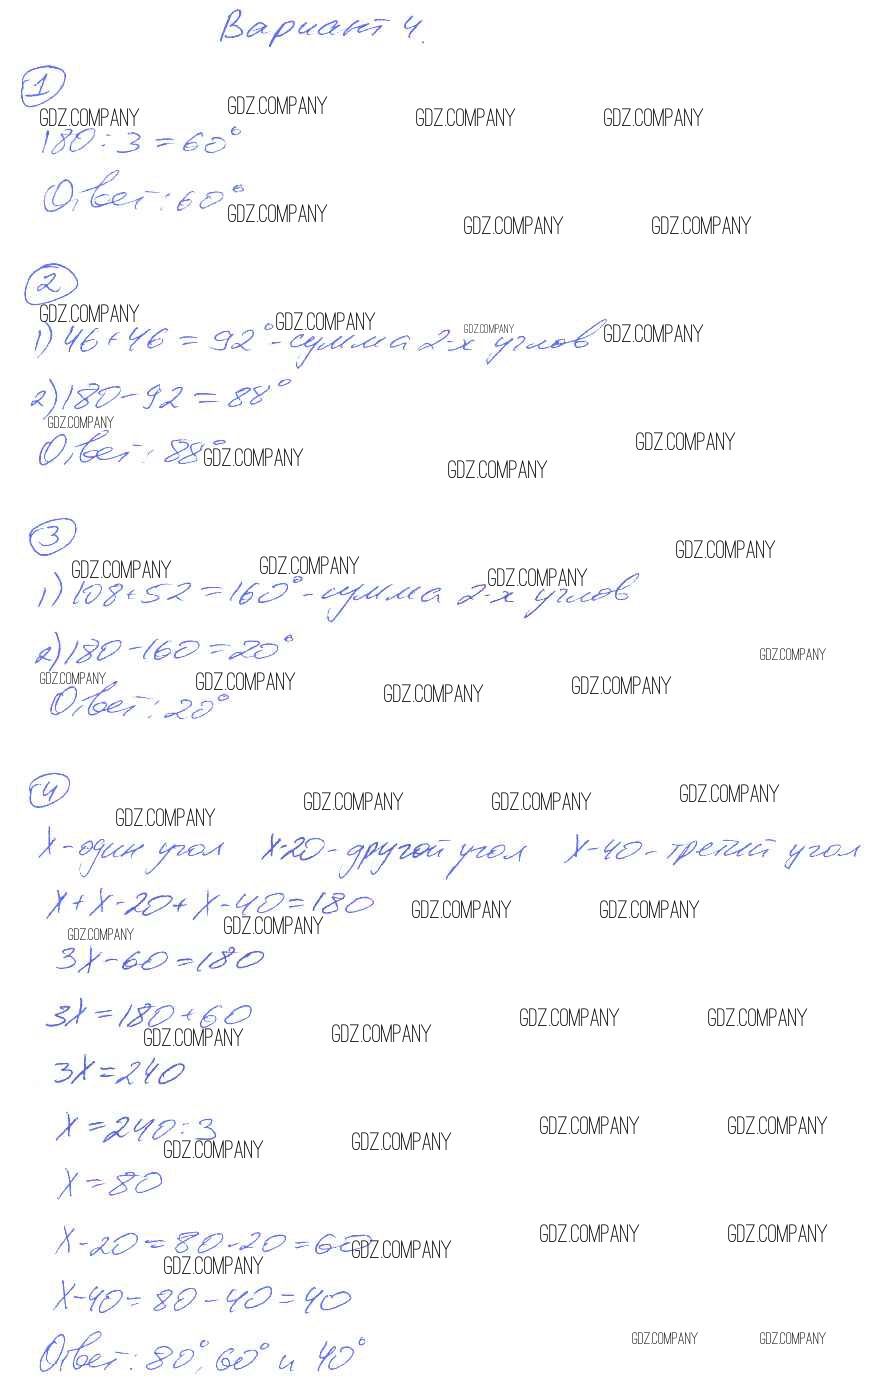 Вариант 4.
1
GDZ.COMPANY GDZ.COMPANY GDZ.COMPANY GDZ.COMPANY
180 : 3 = 60°
Ответ: 60°
GDZ.COMPANY GDZ.COMPANY GDZ.COMPANY
2
GDZ.COMPANY GDZ.COMPANY GDZ.COMPANY GDZ.COMPANY
1) 46 + 46 = 92° - сумма 2-х углов
2) 180 - 92 = 88°
GDZ.COMPANY
Ответ: 88°
GDZ.COMPANY GDZ.COMPANY GDZ.COMPANY
3
GDZ.COMPANY GDZ.COMPANY GDZ.COMPANY GDZ.COMPANY
1) 108 + 52 = 160° - сумма 2-х углов
2) 180 - 160 = 20°
GDZ.COMPANY
GDZ.COMPANY GDZ.COMPANY GDZ.COMPANY GDZ.COMPANY
Ответ: 20°
4
GDZ.COMPANY GDZ.COMPANY GDZ.COMPANY GDZ.COMPANY
X - один угол X-20 - другой угол X-40 - третий угол
X + X - 20 + X - 40 = 180
GDZ.COMPANY GDZ.COMPANY GDZ.COMPANY GDZ.COMPANY
3X - 60 = 180
3X = 180 + 60
GDZ.COMPANY GDZ.COMPANY GDZ.COMPANY GDZ.COMPANY
3X = 240
X = 240 : 3
GDZ.COMPANY GDZ.COMPANY GDZ.COMPANY GDZ.COMPANY
X = 80
X - 20 = 80 - 20 = 60
GDZ.COMPANY GDZ.COMPANY GDZ.COMPANY GDZ.COMPANY
X - 40 = 80 - 40 = 40
Ответ: 80°, 60° и 40°
GDZ.COMPANY GDZ.COMPANY